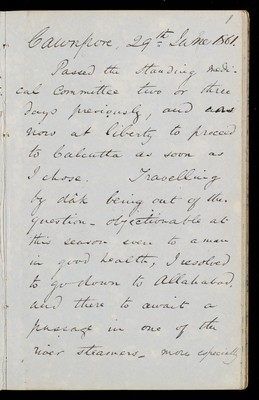 1
Cawnpore, 29th June 1861.
Passed the Standing Medi-
cal Committee two or three
days previously, and was
now at liberty to proceed
to Calcutta as soon as
I chose. Travelling
by dâk being out of the
question - objectionable at
this season even to a man
in good health, I resolved
to go down to Allahabad,
and there to await a
passage in one of the
river steamers - more especially